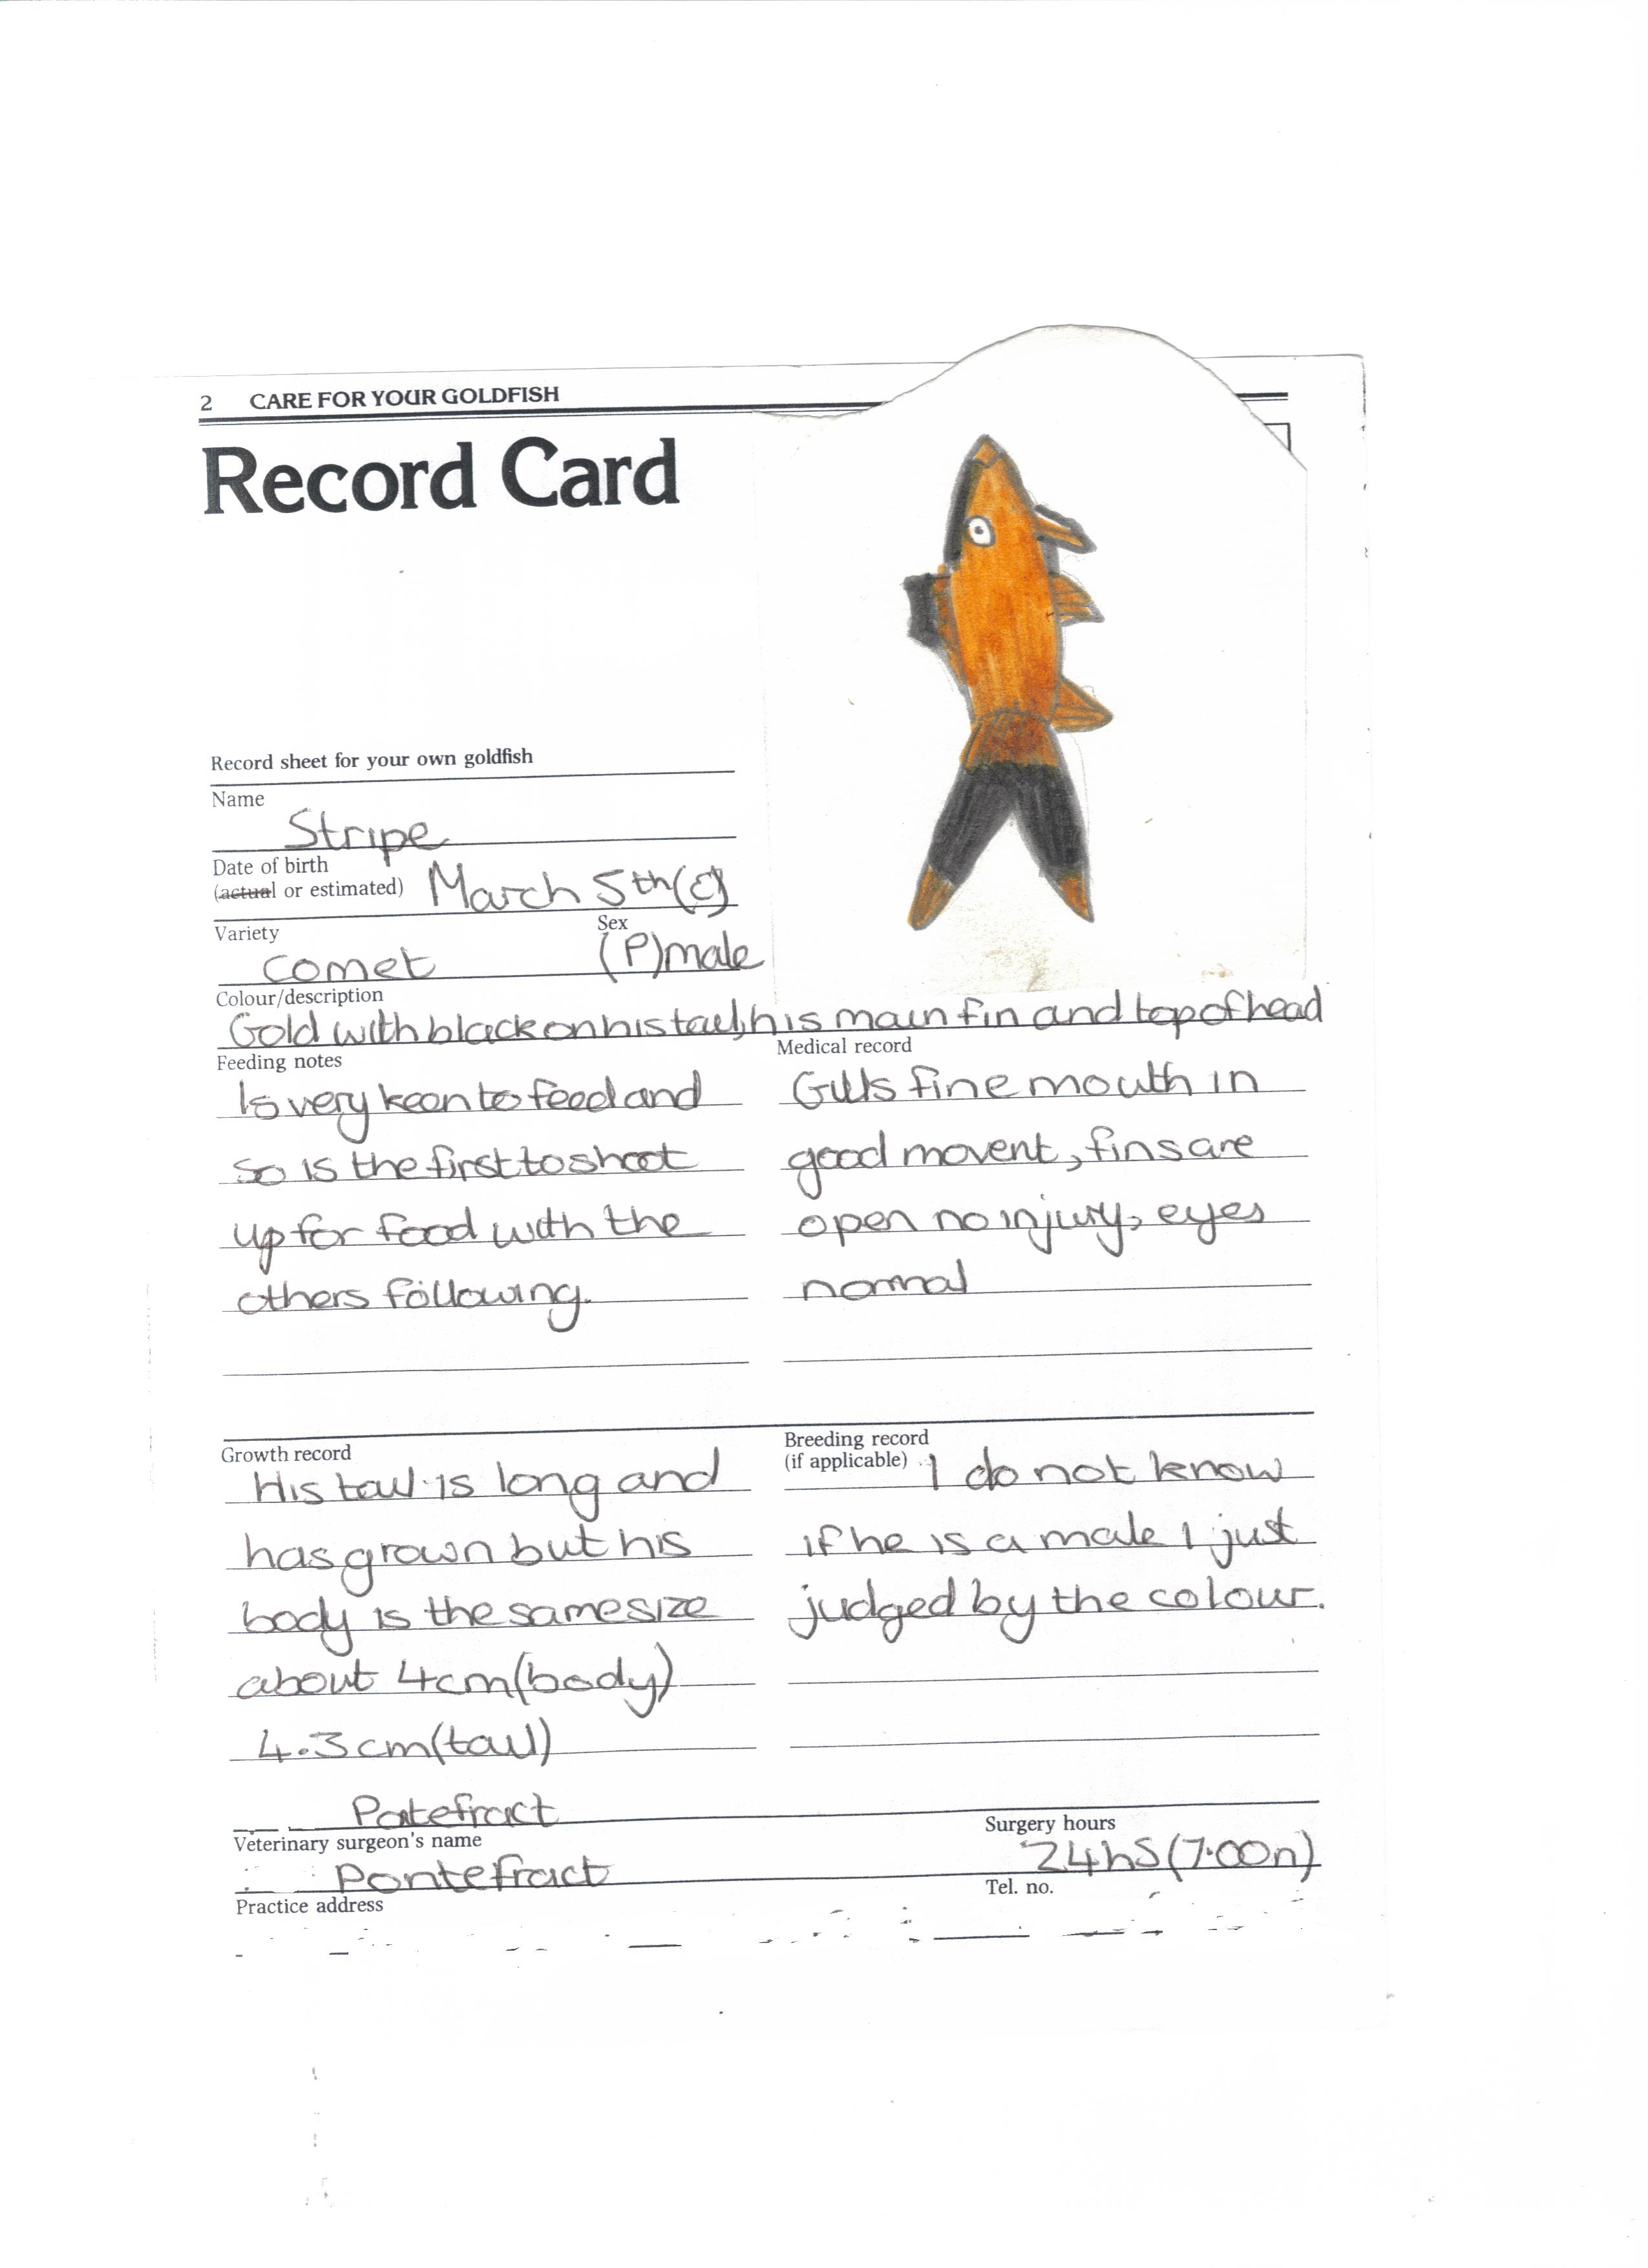 2 CARE FOR YOUR GOLDFISH
Record Card
Record sheet for your own goldfish
Name
Stripe
Date of birth
(actual or estimated) March 5th(e)
Variety
Sex
comet
(P)male
Colour/description
Gold with black on his tail, his main fin and top of head
Feeding notes
Is very keen to feed and
so is the first to shoot
up for food with the
others following.
Medical record
Gills fine mouth in
good movent, fins are
open no injury, eyes
normal
Growth record
His tail is long and
has grown but his
body is the same size
about 4cm(body)
4.3cm(tail)
Breeding record
(if applicable) I do not know
if he is a male I just
judged by the colour.
Patefract
Veterinary surgeon's name
Surgery hours
Pontefract
24hs(7.00n)
Practice address
Tel. no.